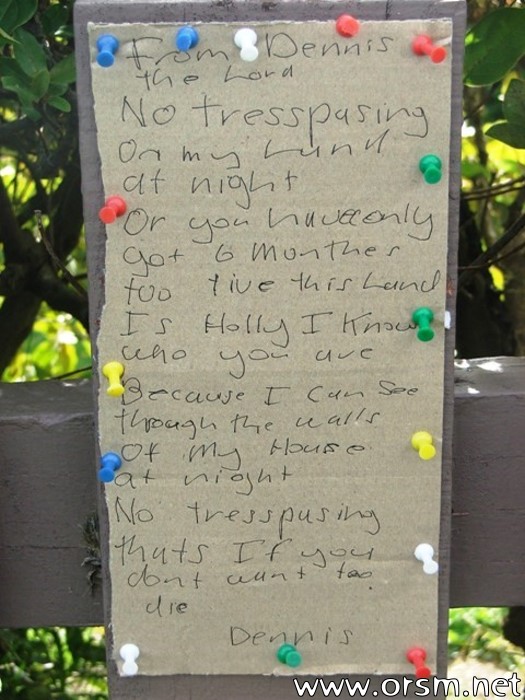 From Dennis
the Lord
No tresspasing
On my Land
at night
Or you have only
got 6 Monthes
too live this Land
Is Holly I Know
who you are
Because I Can See
through the walls
Of My House
at night
No tresspasing
thats If you
dont want too
die
Dennis
www.orsm.net